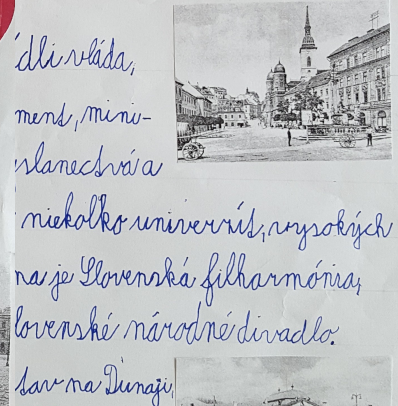 ídli vláda,
ment, mini-
slanectvá a
niekolko univerzít, vysokých
na je Slovenská filharmónia,
lovenské národné divadlo.
tav na Dunaji,